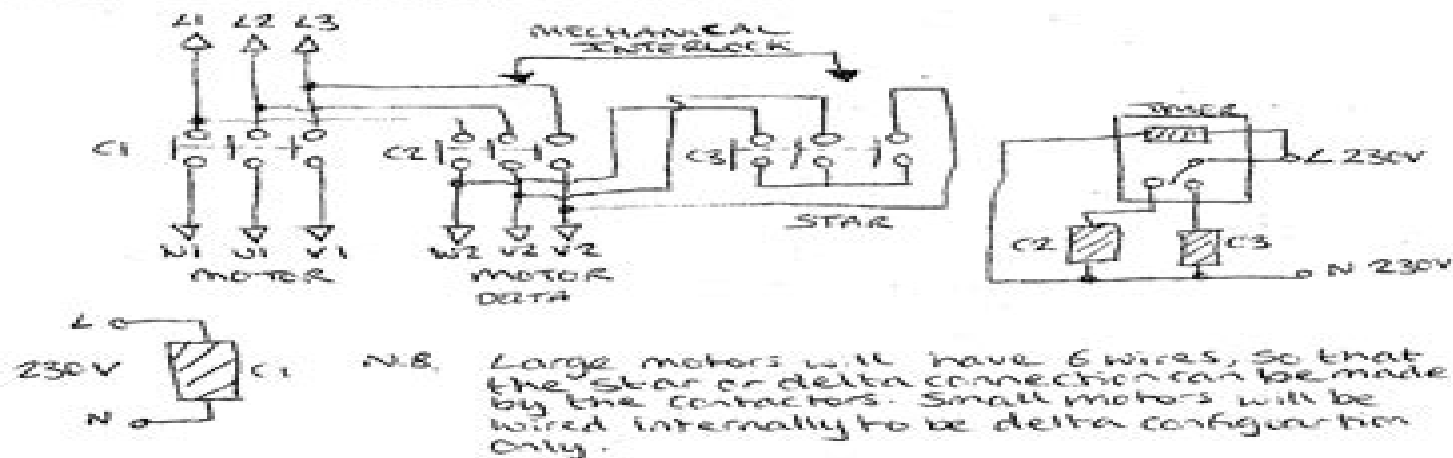 L1 L2 L3
MECHANICAL
INTERLOCK
TIMER
C1
C2
C3
L 230V
STAR
C2
C3
N 230V
MOTOR
W2 V2
MOTOR
DELTA
L
230V
C1
N
N.B. Large motors will have 6 wires, so that
the star or delta connection can be made
by the contactors. Small motors will be
wired internally to be delta configuration
only.